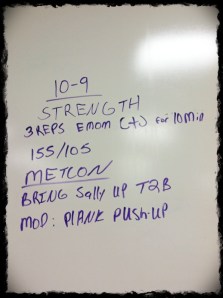 10-9
STRENGTH
3 REPS EMOM (+) for 10Min
155/105
METCON
BRING Sally UP T2B
MOD: PLANK PUSH-UP